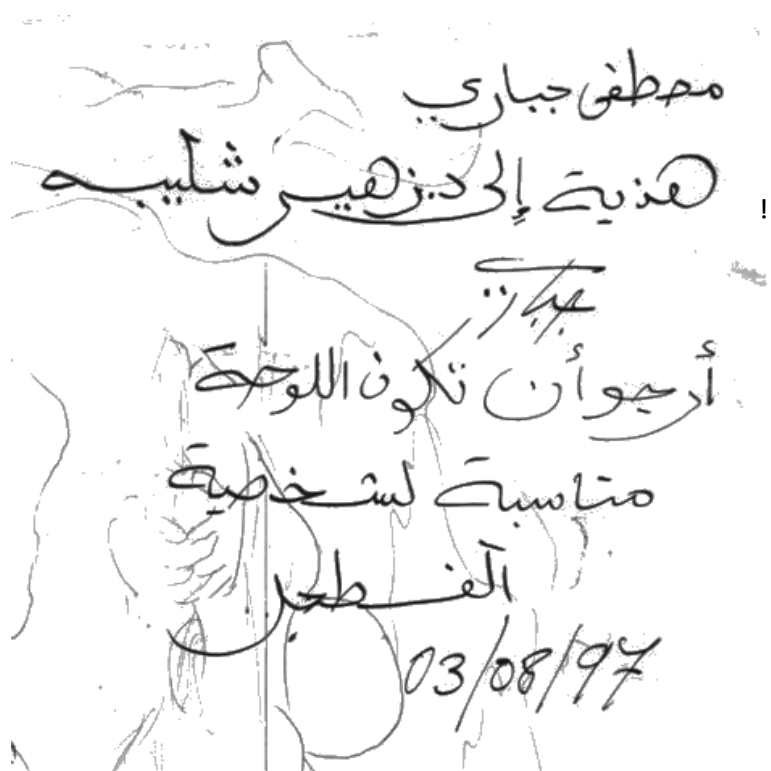 مصطفى جباري
هدية إلى د. زهير شليبه
!
أرجو أن تكون اللوحة
مناسبة لشخصية
الفطحل
03/08/97